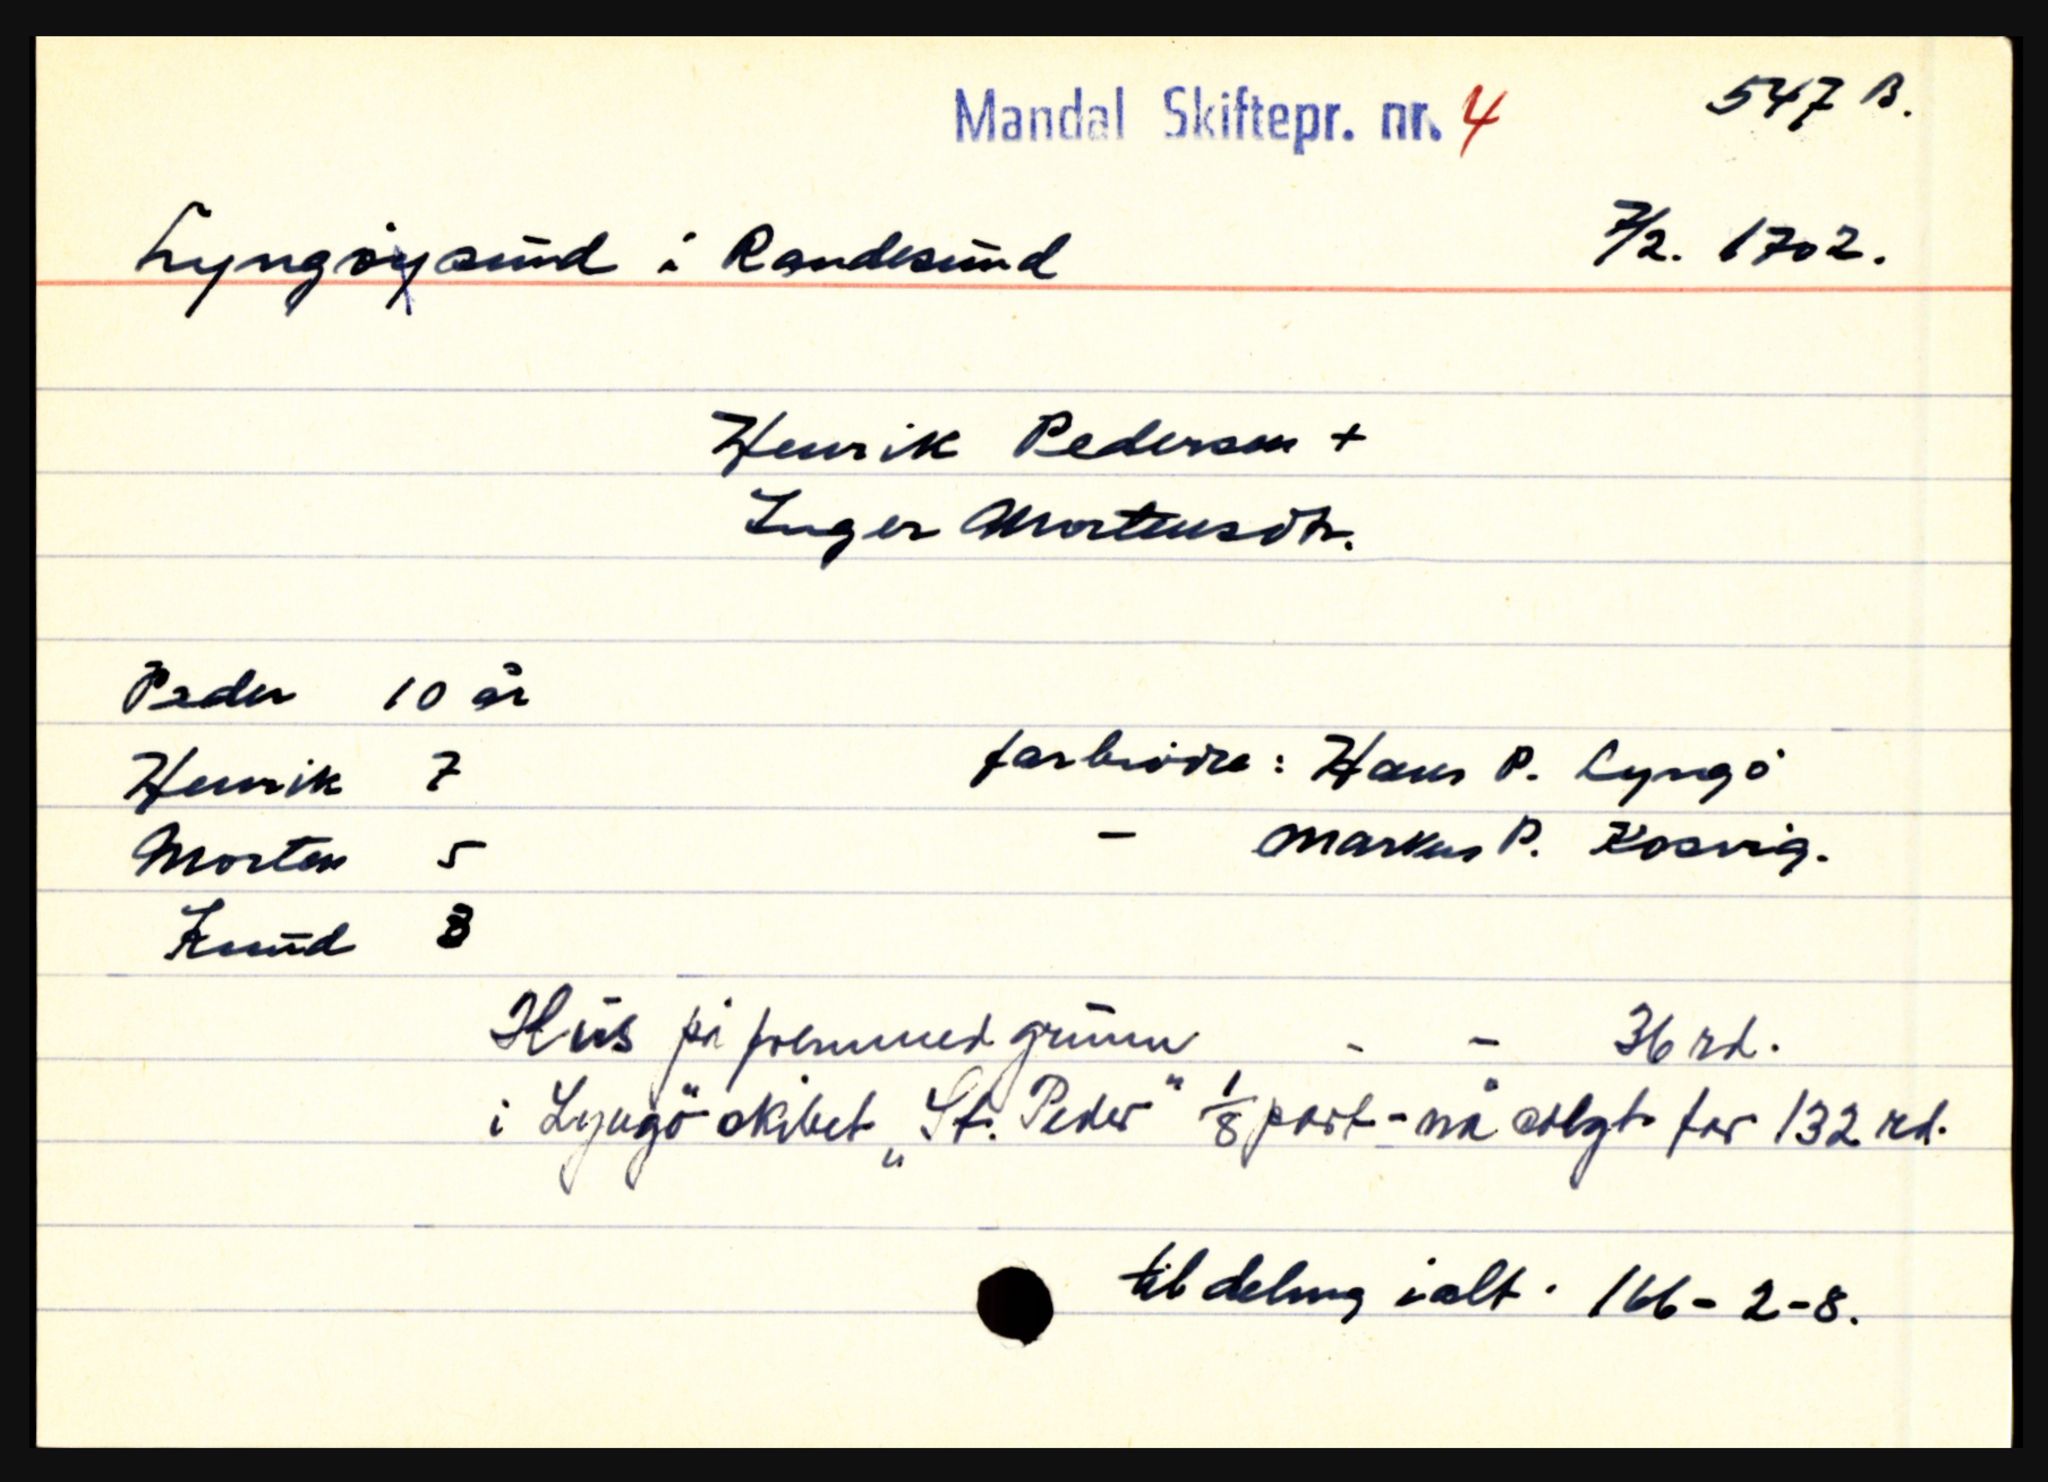 Mandal Skiftepr. nr. 4 547 B.
Lyngöysund i Randesund 7/2. 1702.
Henrik Pedersen +
Inger Mortensdtr.
Peder 10 år
Henrik 7 farbröðre: Hans P. Lyngö
Morten 5 - Markus P. Kosvig.
Knud 3
Hus på fremmed grunn - - 36 rd.
i Lyngö skibet „St. Peder" 1/8 part - nå solgt for 132 rd.
til deling ialt. 166-2-8.